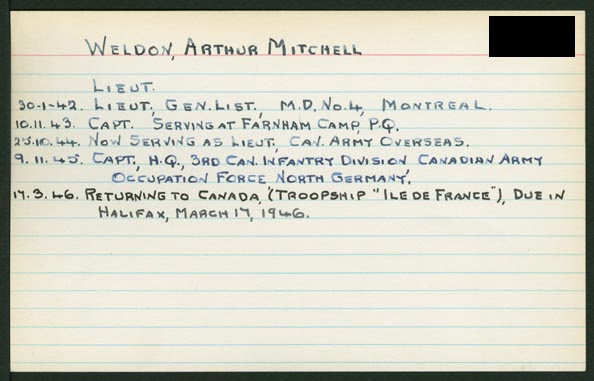 WELDON, ARTHUR MITCHELL
LIEUT.
30-1-42. LIEUT, GEN. LIST, M.D. NO. 4, MONTREAL.
10.11.43. CAPT. SERVING AT FARNHAM CAMP, P.Q.
25.10.44. NOW SERVING AS LIEUT, CAN. ARMY OVERSEAS.
9.11.45. CAPT, H.Q., 3RD CAN. INFANTRY DIVISION CANADIAN ARMY
OCCUPATION FORCE NORTH GERMANY.
17.3.46. RETURNING TO CANADA, (TROOPSHIP "ILE DE FRANCE"), DUE IN
HALIFAX, MARCH 17, 1946.